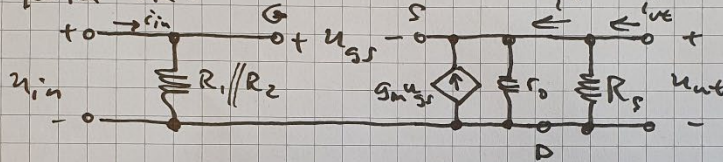 + i_in G + u_gs - S i i_ut +
u_in R₁//R₂ g_m u_gs r_o R_s u_ut
- D -